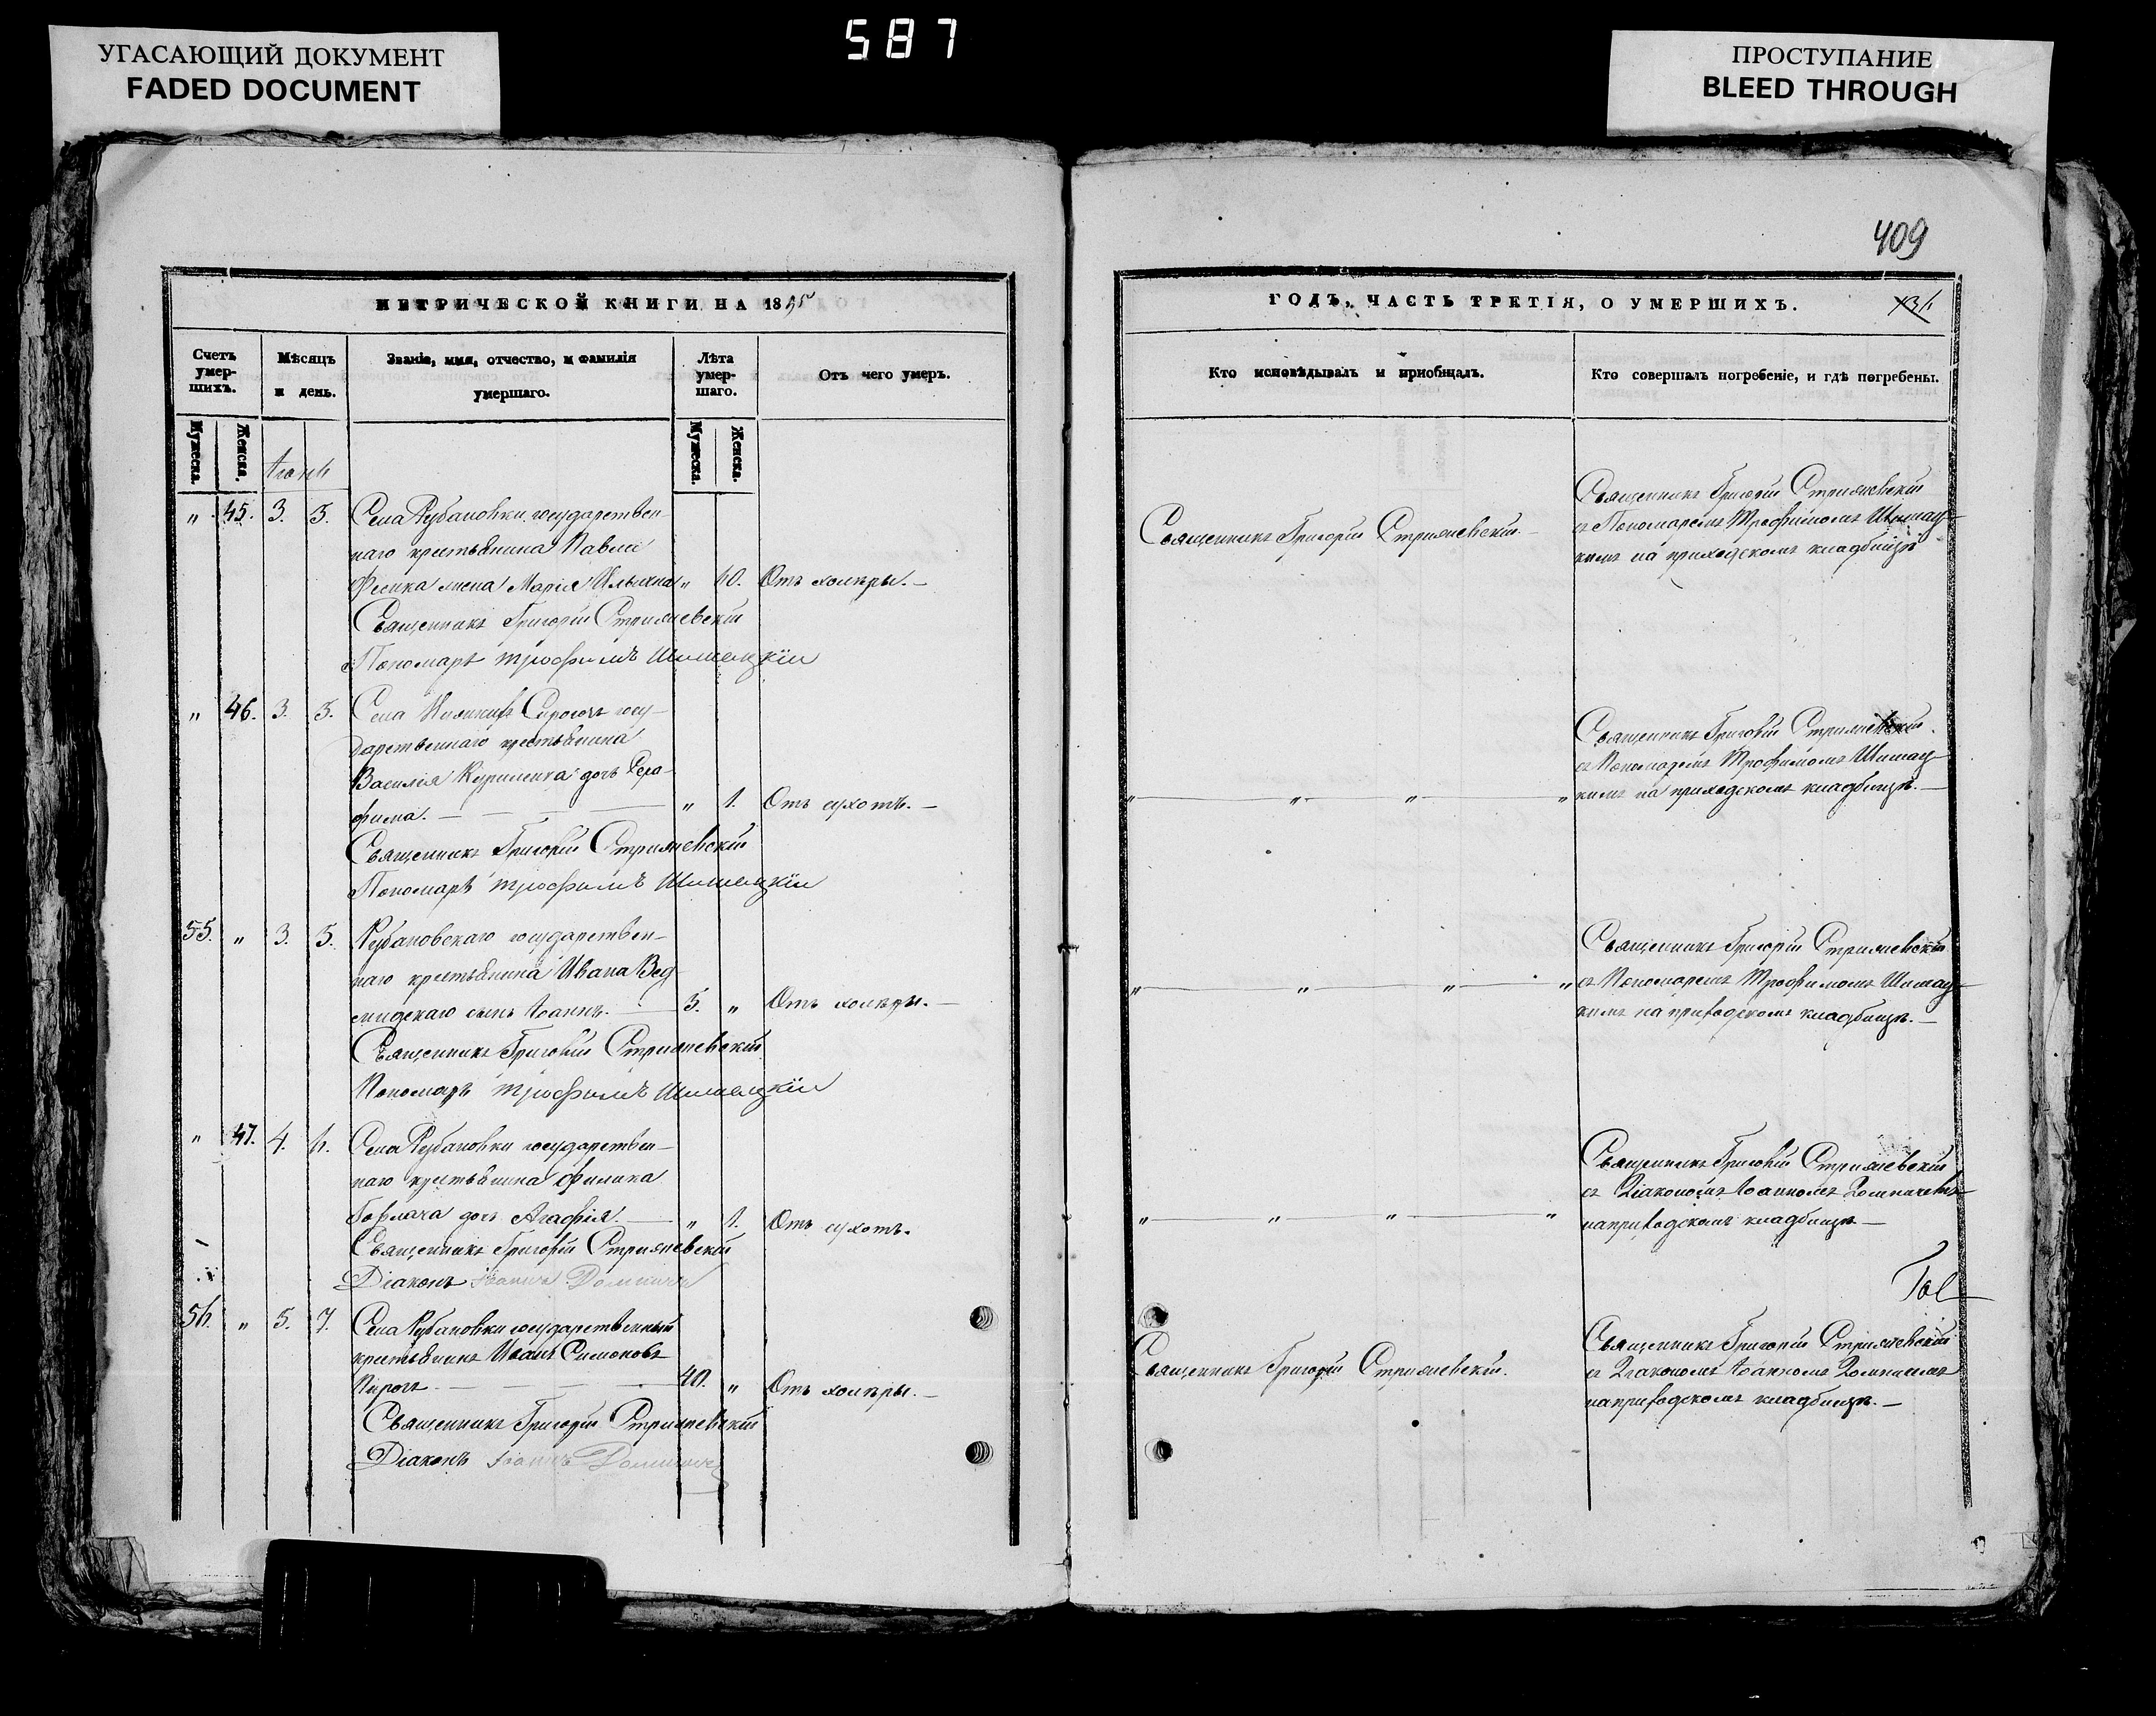 УГАСАЮЩИЙ ДОКУМЕНТ
FADED DOCUMENT
587
ПРОСТУПАНИЕ
BLEED THROUGH
409
МЕТРИЧЕСКОЙ КНИГИ НА 18
ГОДЪ, ЧАСТЬ ТРЕТІЯ, О УМЕРШИХЪ.
Счетъ умершихъ.
Мѣсяцъ и день.
Званіе, имя, отчество, и фамилія умершаго.
Лѣта умершаго.
Отъ чего умеръ.
Кто исповѣдывалъ и пріобщалъ.
Кто совершалъ погребеніе, и гдѣ погребены.
Мужеска.
Женска.
Мужеска.
Женска.
" 45. 3. 5. Села Рубановки государствен-
наго крестьянина Павла
жена Марія " Отъ холѣры.-
Священникъ Григорій Стрижевскій
Пономарь Трофимъ Шишацкій
Священникъ Григорій Стрижевскій.
Священникъ Григорій Стрижевскій
съ Пономаремъ Трофимомъ Шишац-
кимъ на приходскомъ кладбищѣ
" 46. 3. 5. Села Сирогозъ госу-
дарственнаго крестьянина
Василія Куриленка дочь Сера-
фима. " 1. Отъ сухотъ.-
Священникъ Григорій Стрижевскій
Пономарь Трофимъ Шишацкій
" " " "
Священникъ Григорій Стрижевскій
съ Пономаремъ Трофимомъ Шишац-
кимъ на приходскомъ кладбищѣ.-
55. " 3. 5. Рубановскаго государствен-
наго крестьянина Ивана
сынъ Іоаннъ. 5. " Отъ холѣры.-
Священникъ Григорій Стрижевскій
Пономарь Трофимъ Шишацкій
" " " "
Священникъ Григорій Стрижевскій
съ Пономаремъ Трофимомъ Шишац-
кимъ на приходскомъ кладбищѣ.-
" 47. 4. 6. Села Рубановки государствен-
наго крестьянина
дочь Агафія. " 1. Отъ сухотъ.
Священникъ Григорій Стрижевскій
Діаконъ Іоаннъ
" " " "
Священникъ Григорій Стрижевскій
съ Діакономъ Іоанномъ
на приходскомъ кладбищѣ-
56. " 5. 7. Села Рубановки государственный
крестьянинъ Иванъ Симоновъ
Пирогъ 40. " Отъ холѣры.-
Священникъ Григорій Стрижевскій
Діаконъ Іоаннъ
Священникъ Григорій Стрижевскій.
Священникъ Григорій Стрижевскій
съ Діакономъ Іоанномъ
на приходскомъ кладбищѣ.-